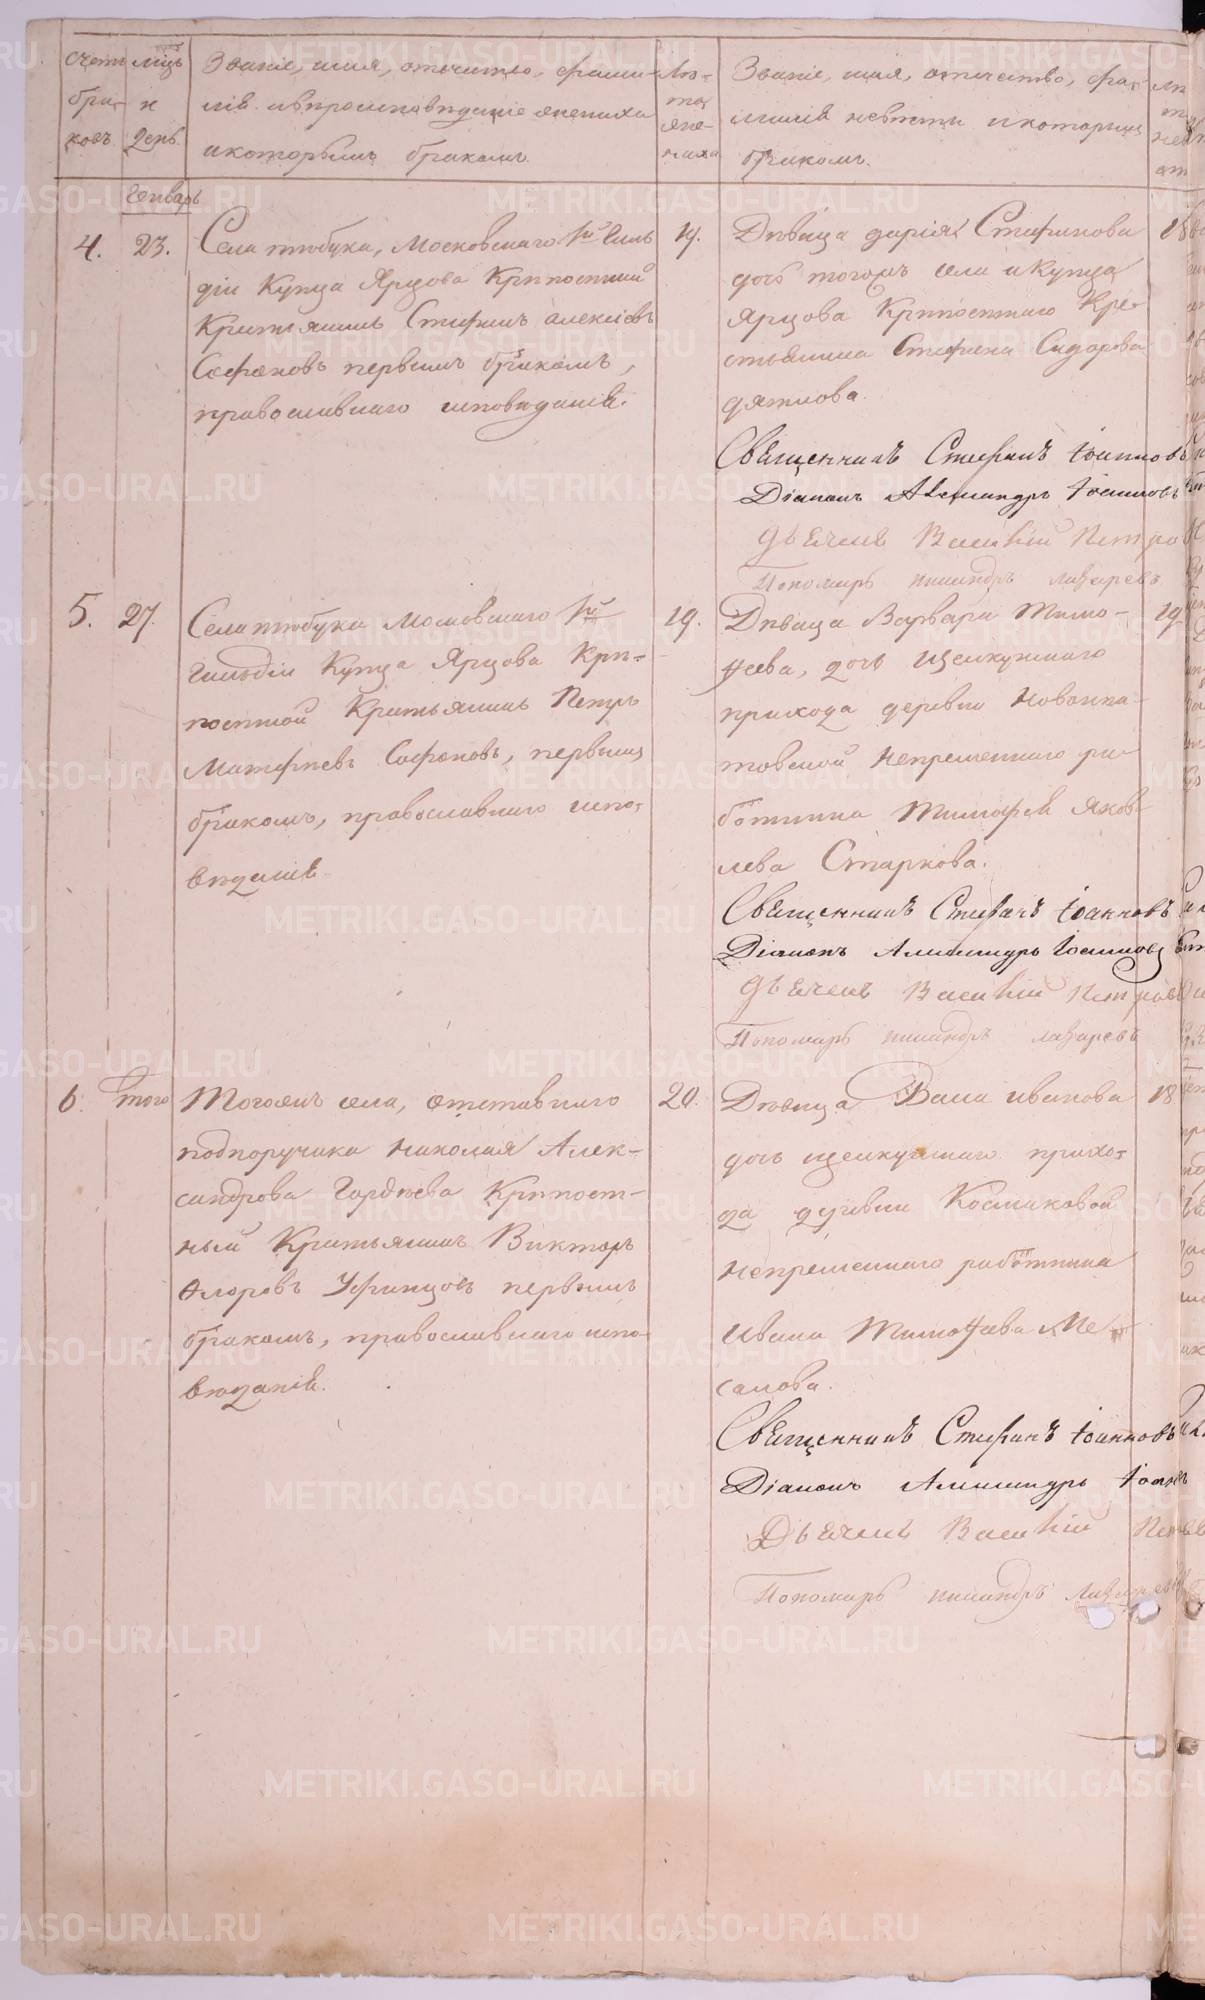 Счетъ браковъ
Мѣсяцъ и день
Званіе, имя, отчество, фами-
лія и вѣроисповѣданіе жениха
и которымъ бракомъ.
Лѣта жениха
Званіе, имя, отчество, фа-
милія невѣсты и которымъ
бракомъ.
Генварь
4.
23.
Села Тюбука, Московскаго 1й Гиль
діи Купца Ярцова Крѣпостный
Крестьянинъ Стефанъ Алексѣевъ
Сафоновъ первымъ бракомъ,
православнаго исповѣданія.
19.
Дѣвица Дарія Стефанова
дочь тогожъ села и Купца
Ярцова Крѣпостнаго Кре-
стьянина Стефана Сидорова
Дятлова.
18
Священникъ Стефанъ Іоанновъ
Діаконъ Александръ Іоанновъ
Дьячекъ Василій Петровъ
Пономарь Никандръ Лазаревъ
5.
27.
Села Тюбука Московскаго 1й
Гильдіи Купца Ярцова Крѣ-
постной Крестьянинъ Петръ
Матфѣевъ Сафоновъ, первымъ
бракомъ, православнаго испо-
вѣданія.
19.
Дѣвица Варвара Тимо-
ѳеева, дочь Щелкунскаго
прихода деревни Новоипа-
товской непременнаго ра
ботника Тимофея Яков-
лева Старкова.
19
Священникъ Стефанъ Іоанновъ
Діаконъ Александръ Іоанновъ
Дьячекъ Василій Петровъ
Пономарь Никандръ Лазаревъ
6.
того
Тогожъ села, отставнаго
подпоручика Николая Алек-
сандрова Гордѣева Крѣпост-
ный Крестьянинъ Викторъ
Флоровъ Уфинцовъ первымъ
бракомъ, православнаго испо-
вѣданія.
20.
Дѣвица Васса Иванова
дочь Щелкунскаго прихо-
да деревни Космаковой
непременнаго работника
Ивана Тимоѳеева Ме-
самова.
18
Священникъ Стефанъ Іоанновъ
Діаконъ Александръ Іоанновъ
Дьячекъ Василій
Пономарь Никандръ Лазаревъ
METRIKI.GASO-URAL.RU